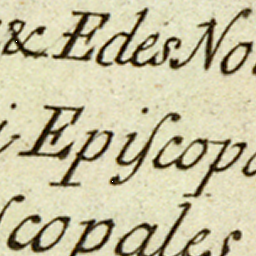 & Edes No
i Epiſcopa
ſcopales